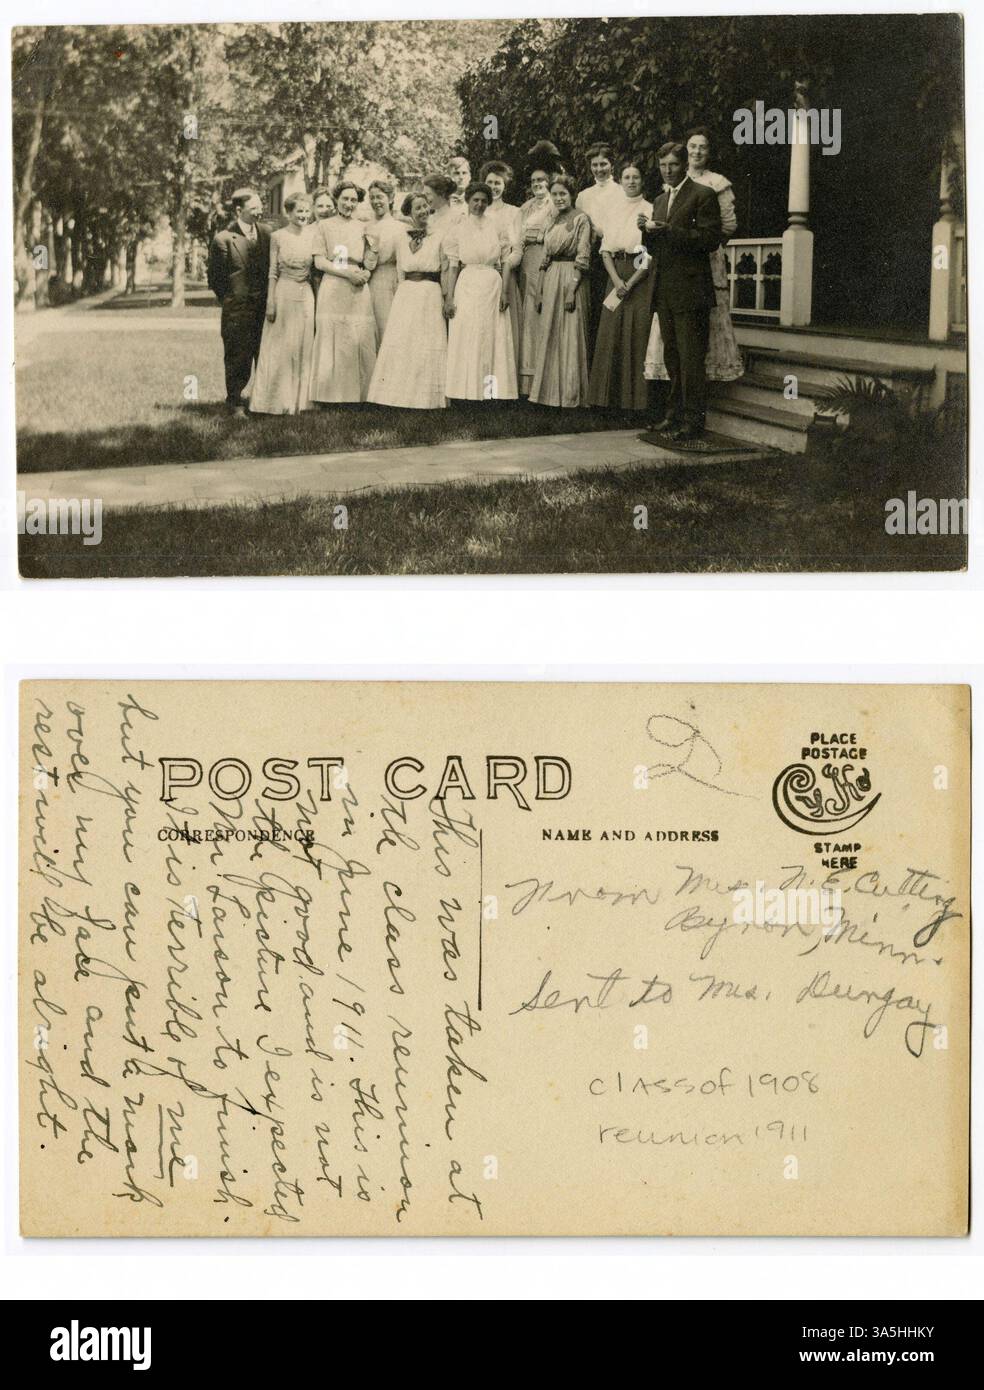 alamy
POST CARD
CORRESPONDENCE
NAME AND ADDRESS
PLACE
POSTAGE
STAMP
HERE
This was taken at
the class reunion
in June 1911. This is
not good and is not
the picture I expected
Mr. Larson to finish.
It is terrible of me
but you can put a mark
over my face and the
rest will be alright.
From Mrs. N. E. Cutting
Byron, Minn.
Sent to Mrs. Durgay
class of 1908
reunion 1911
alamy
Image ID: 3A5HHKY
www.alamy.com